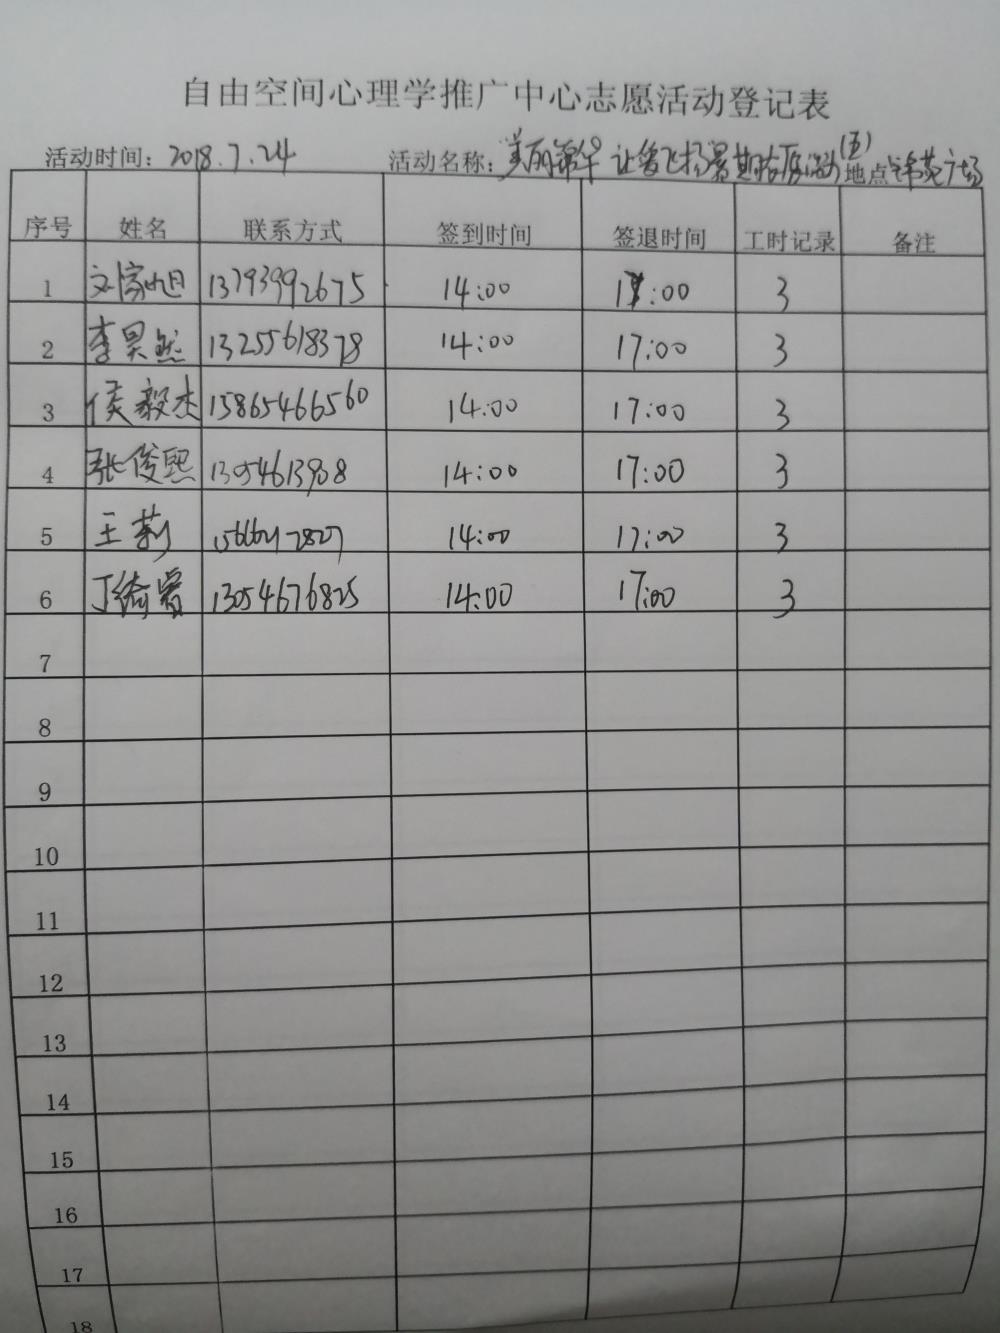 自由空间心理学推广中心志愿活动登记表
活动时间：2018.7.24 活动名称：美丽 让爱飞扬暑期 活动(五) 地点 广场
序号 姓名 联系方式 签到时间 签退时间 工时记录 备注
1 13793992675 14:00 17:00 3
2 李昊然 13255618378 14:00 17:00 3
3 侯毅杰 15865466560 14:00 17:00 3
4 张俊熙 14:00 17:00 3
5 王莉 14:00 17:00 3
6 丁绮睿 13054676825 14:00 17:00 3
7
8
9
10
11
12
13
14
15
16
17
18